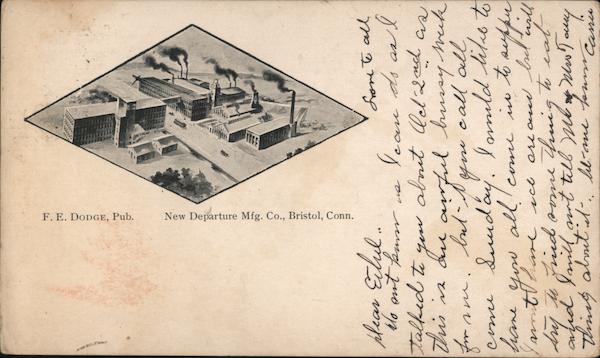 F. E. DODGE, Pub. New Departure Mfg. Co., Bristol, Conn.
Dear Ethel.
Do not know as I can do as I
talked to you about Oct 2nd as
this is an awful busy week
for me. but if you call all
come Sunday. I would like to
have you all come in to supper
I wont have ice cream but will
try to find some thing to eat
and I will not tell Mr & Mrs
thing about it.
Love to all